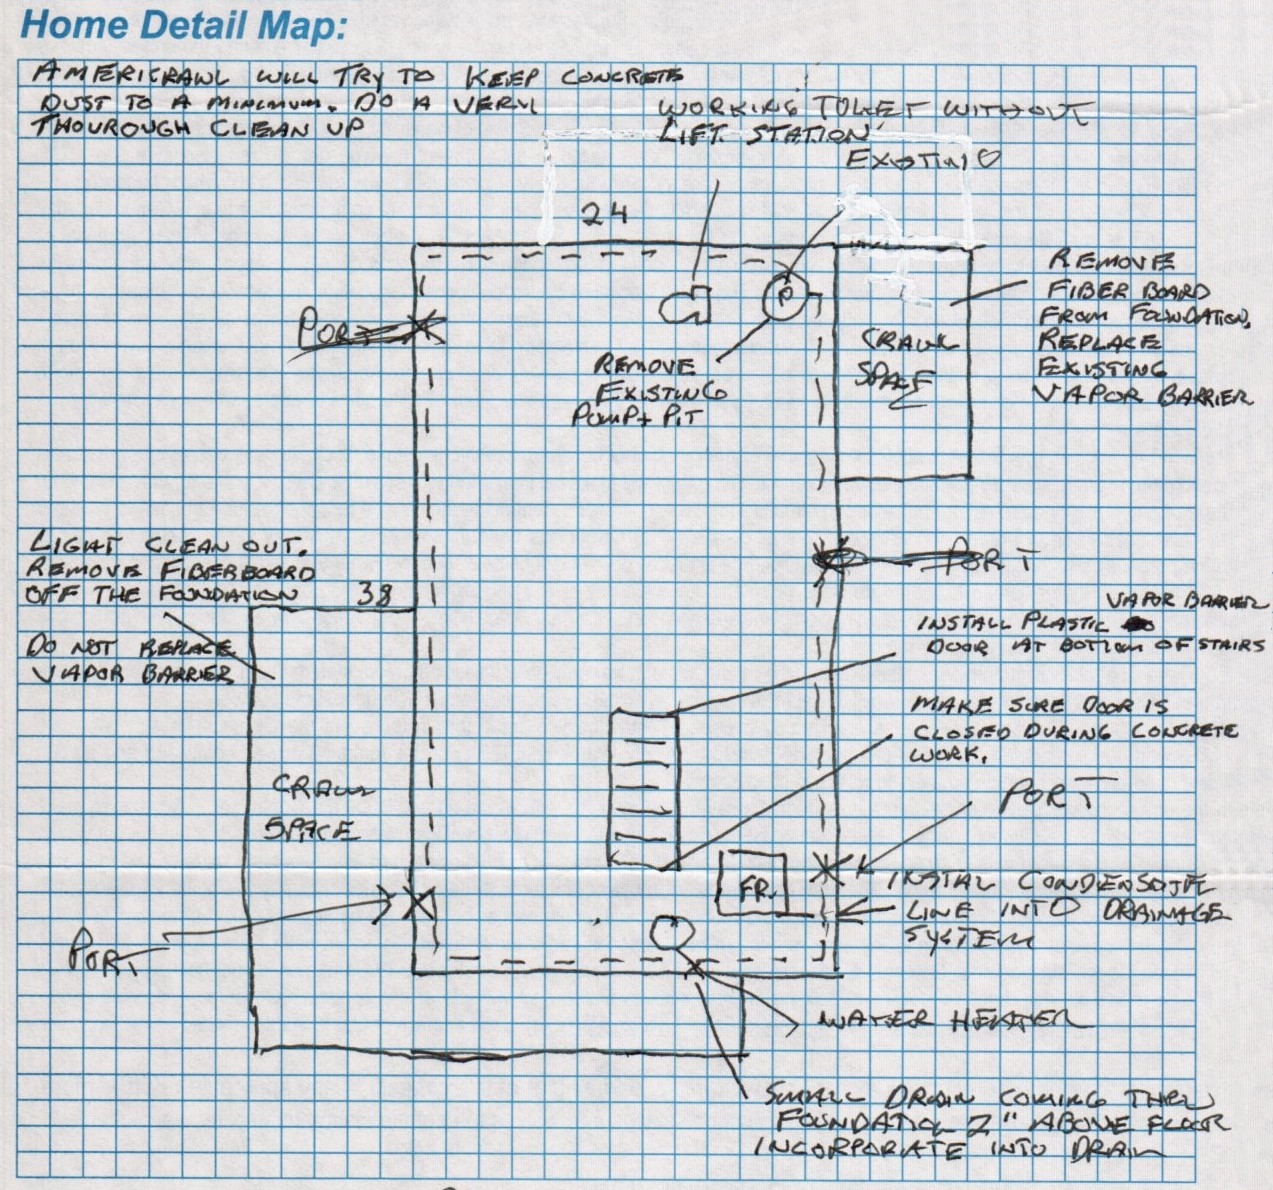 Home Detail Map:
AMERICRAWL WILL TRY TO KEEP CONCRETE
DUST TO A MINIMUM. DO A VERY
THOUROUGH CLEAN UP
WORKING TOILET WITHOUT
LIFT STATION
EXISTING
24
PORT
P
REMOVE
EXISTING
PUMP + PIT
CRAWL
SPACE
REMOVE
FIBER BOARD
FROM FOUNDATION,
REPLACE
EXISTING
VAPOR BARRIER
LIGHT CLEAN OUT.
REMOVE FIBERBOARD
OFF THE FOUNDATION
38
DO NOT REPLACE
VAPOR BARRIER
PORT
VAPOR BARRIER
INSTALL PLASTIC
DOOR AT BOTTOM OF STAIRS
MAKE SURE DOOR IS
CLOSED DURING CONCRETE
WORK.
PORT
CRAWL
SPACE
FR.
INSTAL CONDENSATE
LINE INTO DRAINAGE
SYSTEM
PORT
WATER HEATER
SMALL DRAIN COMING THRU
FOUNDATION 2" ABOVE FLOOR
INCORPORATE INTO DRAIN